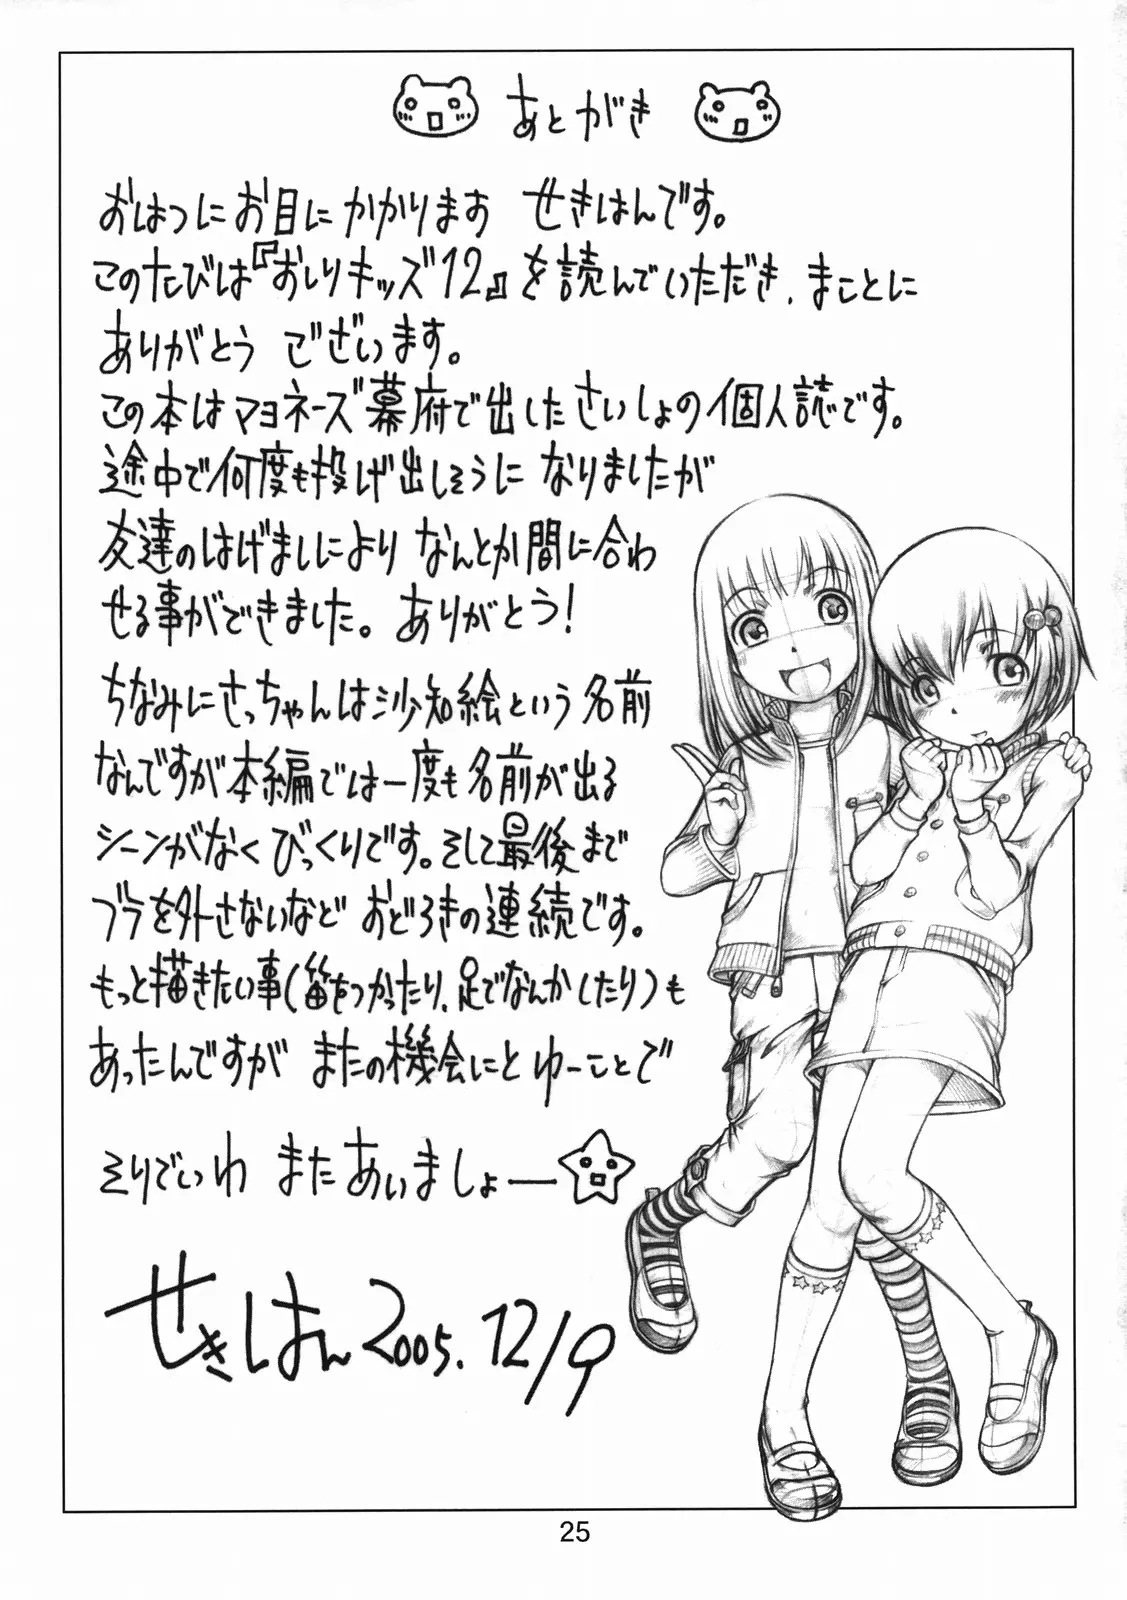 あとがき
おはつにお目にかかります せきはんです。
このたびは『おしりキッズ12』を読んでいただき、まことに
ありがとう ございます。
この本はマヨネーズ幕府で出したさいしょの個人誌です。
途中で何度も投げ出しそうに なりましたが
友達のはげましにより なんとか間に合わ
せる事ができました。ありがとう!
ちなみにさっちゃんは沙知絵という名前
なんですが本編では一度も名前が出る
シーンがなく びっくりです。そして最後まで
ブラを外さないなど おどろきの連続です。
もっと描きたい事(笛をつかったり、足でなんかしたり)も
あったんですが またの機会にと ゆーことで
そりでいわ またあいましょー
せきはん2005.12/9
25